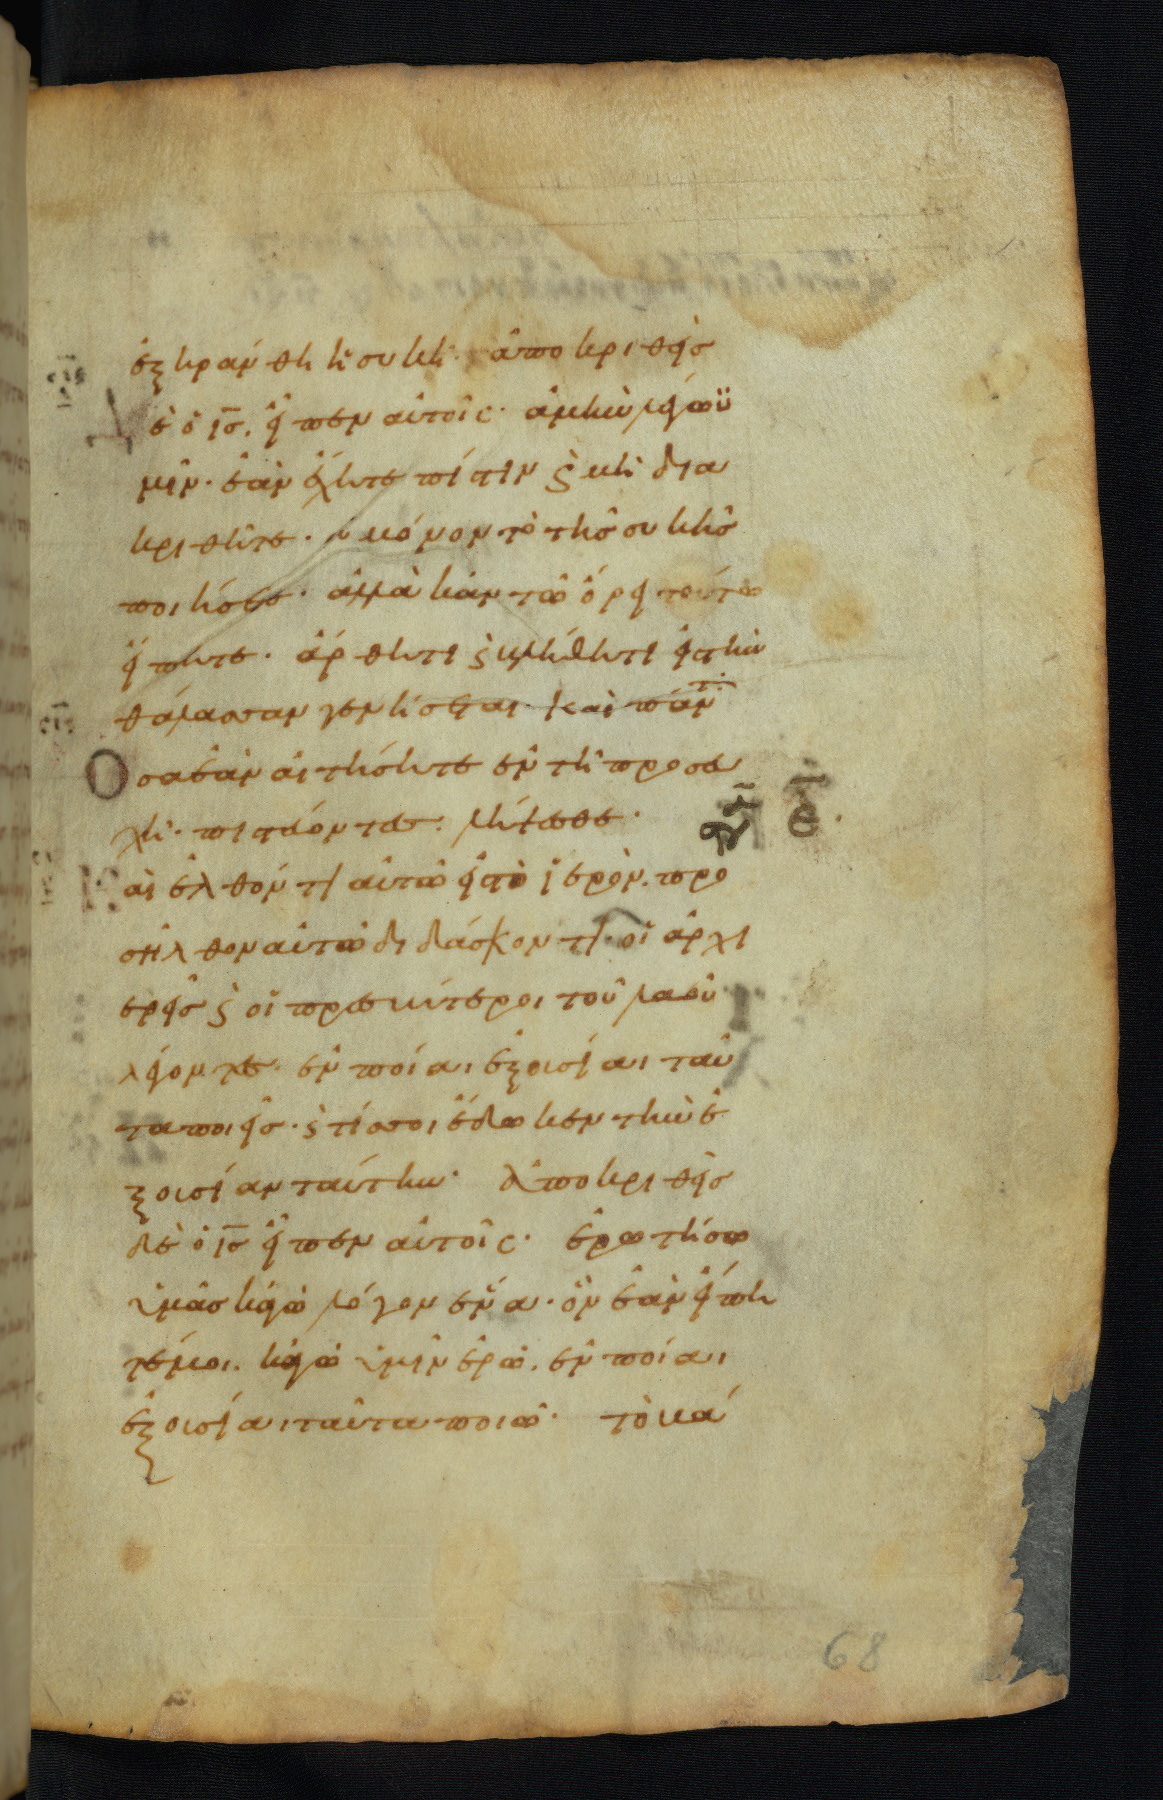 ἐξηράνθη ἡ συκῆ· ἀποκριθεὶς
δὲ ὁ ις̅. εἶπεν αὐτοῖς· ἀμὴν λέγω ὑ
μῖν· ἐὰν ἔχητε πίστιν ϛ μὴ δια
κριθῆτε· οὐ μόνον τὸ τῆς συκῆς
ποιήσετε· ἀλλὰ κἂν τῶ ὄρει τούτω
εἴπητε· ἄρθητι ϛ βλήθητι εἰς τὴν
θάλασσαν γενήσεται· καὶ πάντα
ὅσα ἐὰν αἰτήσητε ἐν τῆ προσευ
χῆ· πιστεύοντες. λήψεσθε·
αὶ ἐλθόντι αὐτῶ εἰς τὸ ἱερὸν. προ
σῆλθον αὐτῶ διδάσκοντι· οἱ ἀρχι
ερεῖς ϛ οἱ πρεσβύτεροι τοῦ λαοῦ
λέγοντες· ἐν ποίαι ἐξουσίαι ταῦ
τα ποιεῖς· ϛ τίς σοι ἔδωκεν τὴν ἐ
ξουσίαν ταύτην· Ἀποκριθεὶς
δὲ ὁ ις̅ εἶπεν αὐτοῖς· ἐρωτήσω
ὑμᾶς κἀγὼ λόγον ἕνα· ὃν ἐὰν εἴπη
τέ μοι. κἀγὼ ὑμῖν ἐρῶ. ἐν ποίαι
ἐξουσίαι ταῦτα ποιῶ· τὸ βά
68